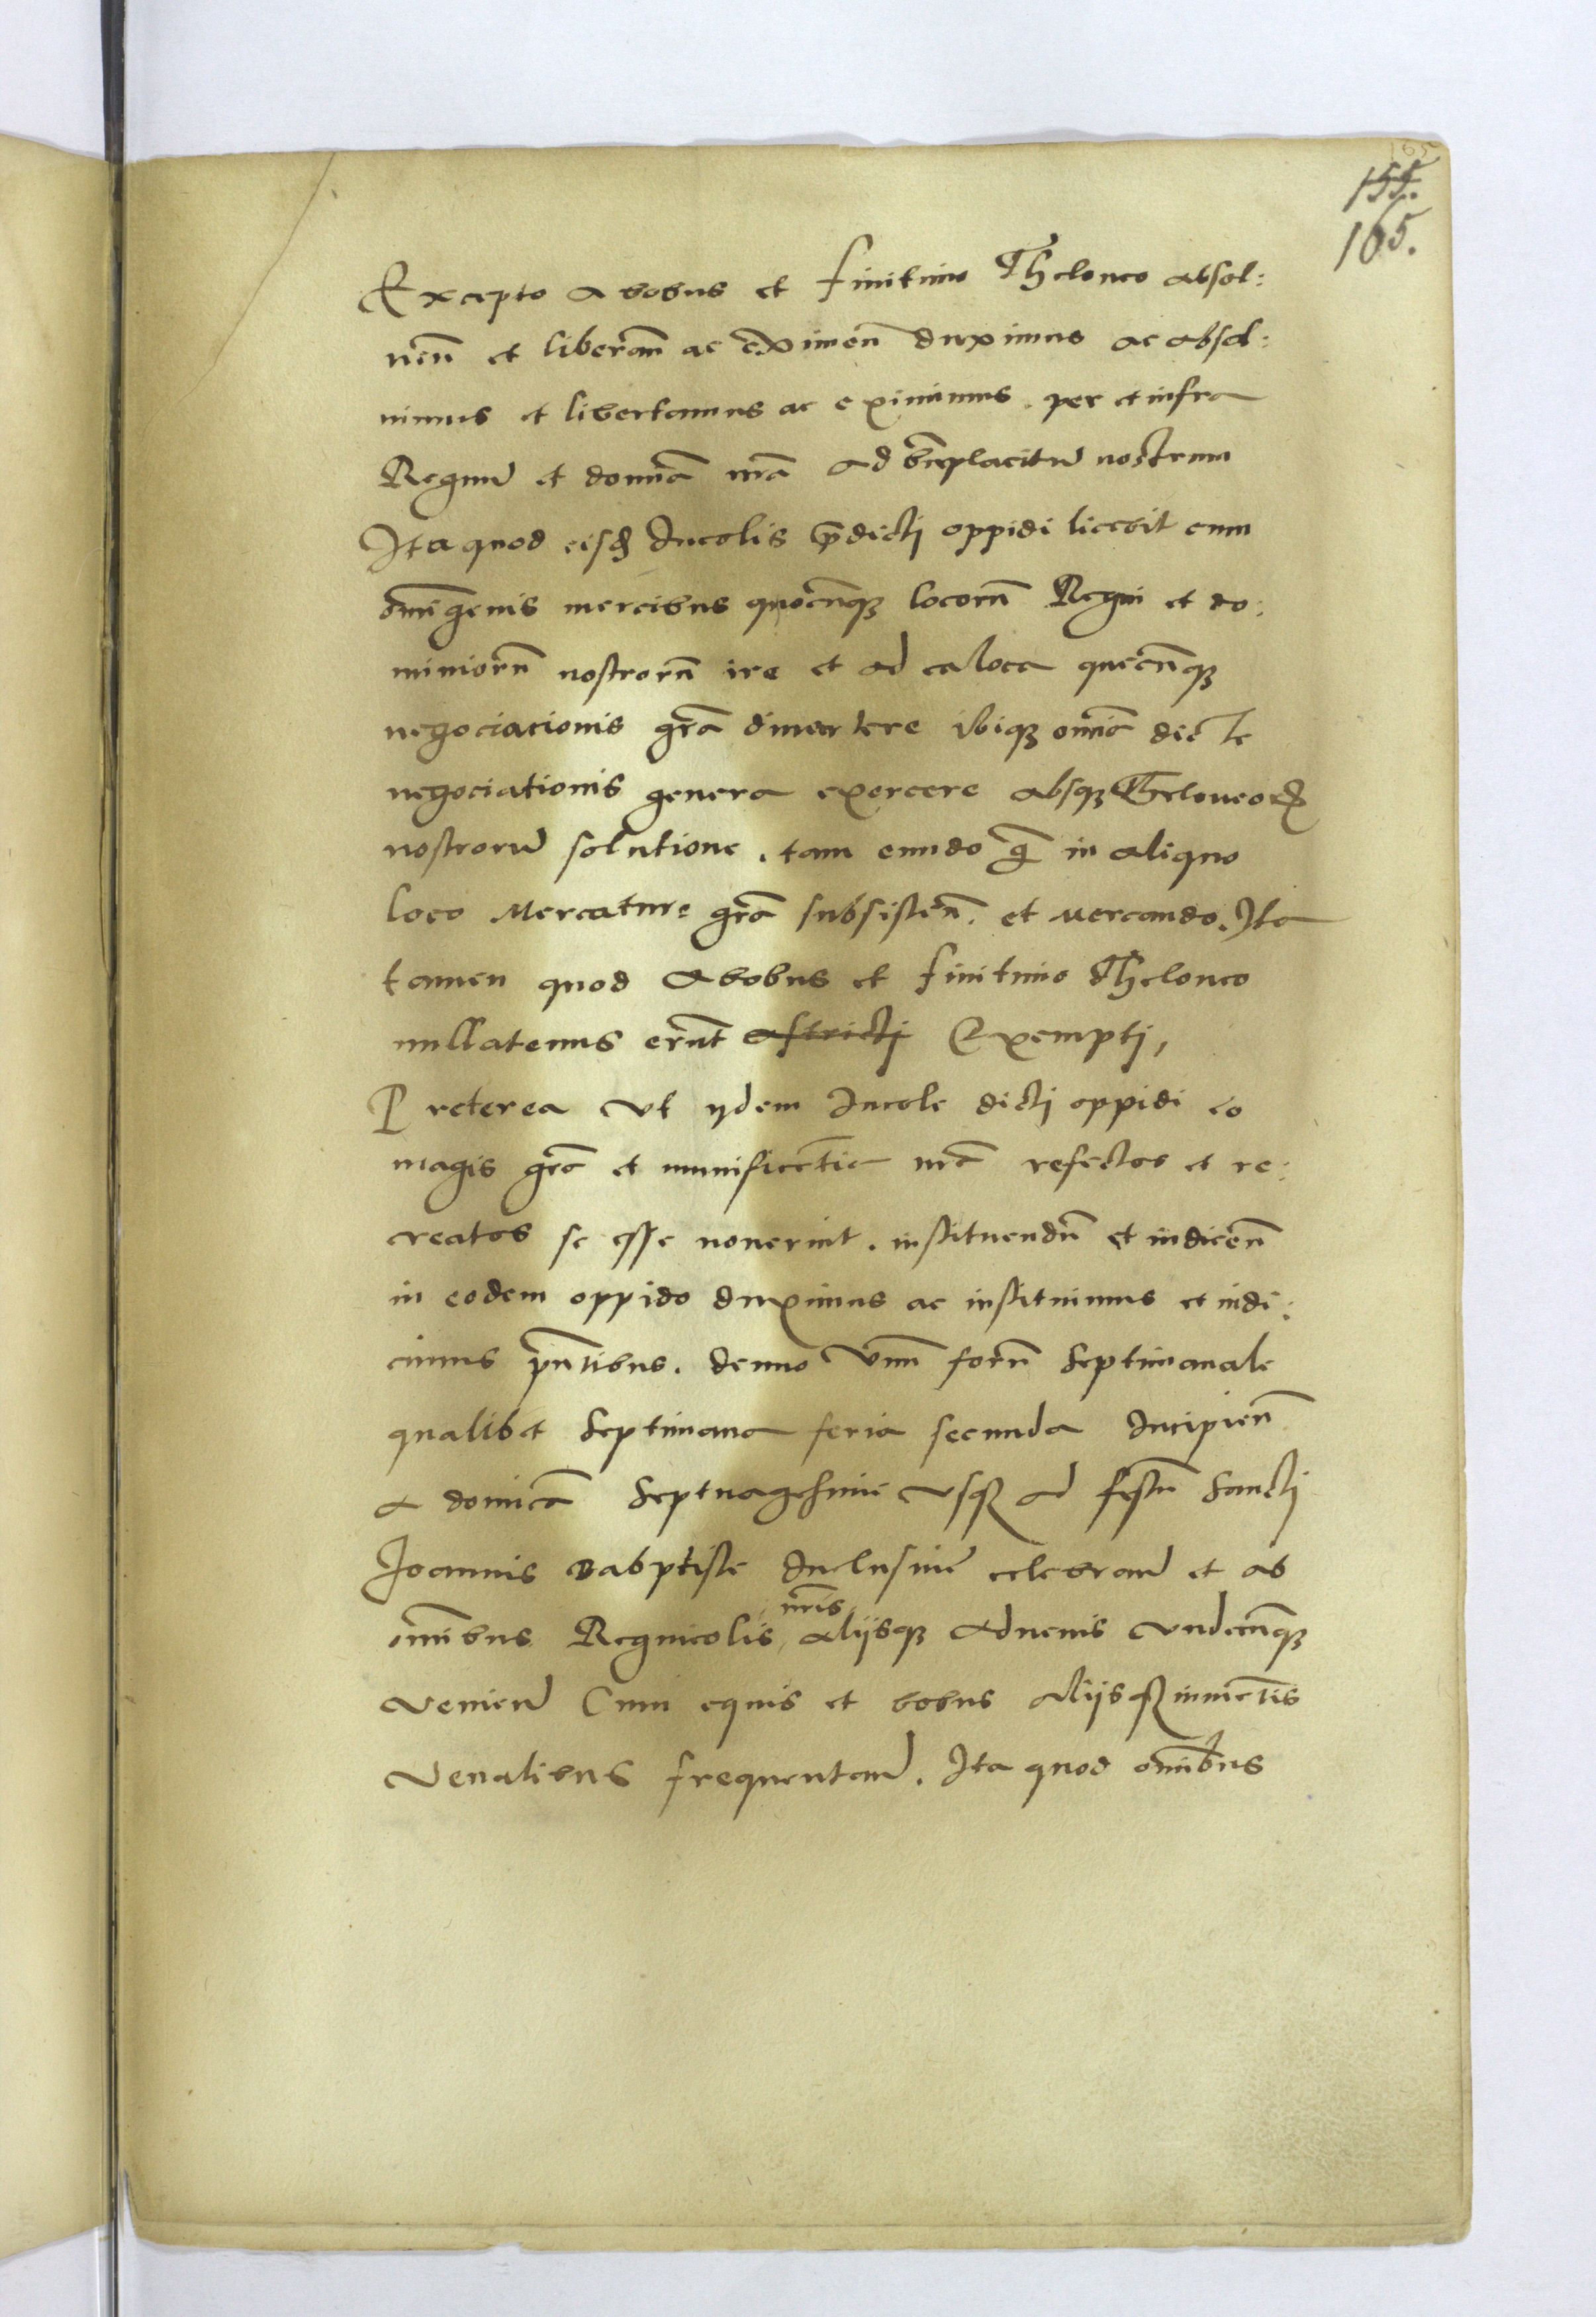 165
155.
165.
Excepto a bobus et finitimo Theloneo absol:
uen̄ et liberan̄ ac eximen̄ duximus ac absol:
uimus et libertamus ac eximimus. per et infra
Regnū et domīa nr̄a ad bn̄placitū nostrum
Ita quod eisdē Incolis p̄dicti oppidi licebit cum
om̄igenis mercibus quocūq3 locorū Regni et do:
miniorū nostrorū ire et ad ea loca quecūq3
negociacionis grā diuertere ibiq3 omīa dicte
negociationis genera exercere absq3 Theloneorꝝ
nostrorū solutione. tam eundo q̄ in aliquo
loco Mercature grā subsisten̄. et mercando. Ita
tamen quod a bobus et finitimo Theloneo
nullatenus erūt astricti Exempti,
Preterea vt ijdem Incole dicti oppidi eo
magis grā et munificētia nr̄a refectos et re:
creatos se esse nouerint. instituendū et indicen̄
in eodem oppido duximus ac instituimus et indi:
cimus pn̄tibus. denuo vnū forū septimanale
qualibet septimana feria secunda Incipien̄
a domīca Septuagesime vsq3 ad festū Sancti
Joannis Babptiste Inclusiue celebran̄ et ab
om̄ibus Regnicolis nr̄is alijsq3 aduenis vndecūq3
venien̄ Cum equis et bobus alijsq3 iumētis
venalibus frequentan̄. Ita quod om̄ibus